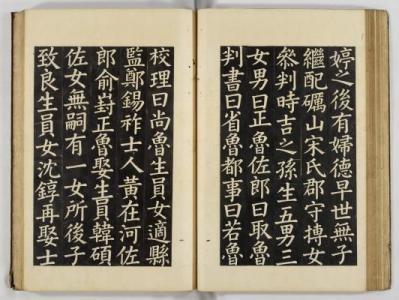 婷之後有婦德早世無子
繼配礪山宋氏郡守摶女
叅判時吉之孫生五男三
女男曰正魯佐郎曰取魯
判書曰省魯都事曰若魯
校理曰尚魯生員女適縣
監鄭錫祚士人黃在河佐
郎俞崶正魯娶生員韓碩
佐女無嗣有一女所後子
致良生員女沈錞再娶士